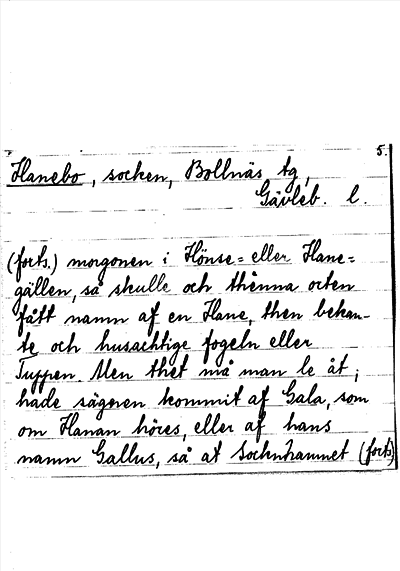 5.
Hanebo, socken, Bollnäs tg,
Gävleb. l.
(forts.) morgonen i Hönse= eller Hane=
gällen, så skulle och thenna orten
fått namn af en Hane, then bekan-
te och husachtige fogeln eller
Tuppen. Men thet må man le åt;
hade sägnen kommit af Gala, som
om Hanan höres, eller af hans
namn Gallus, så at Socknhamnet (forts)